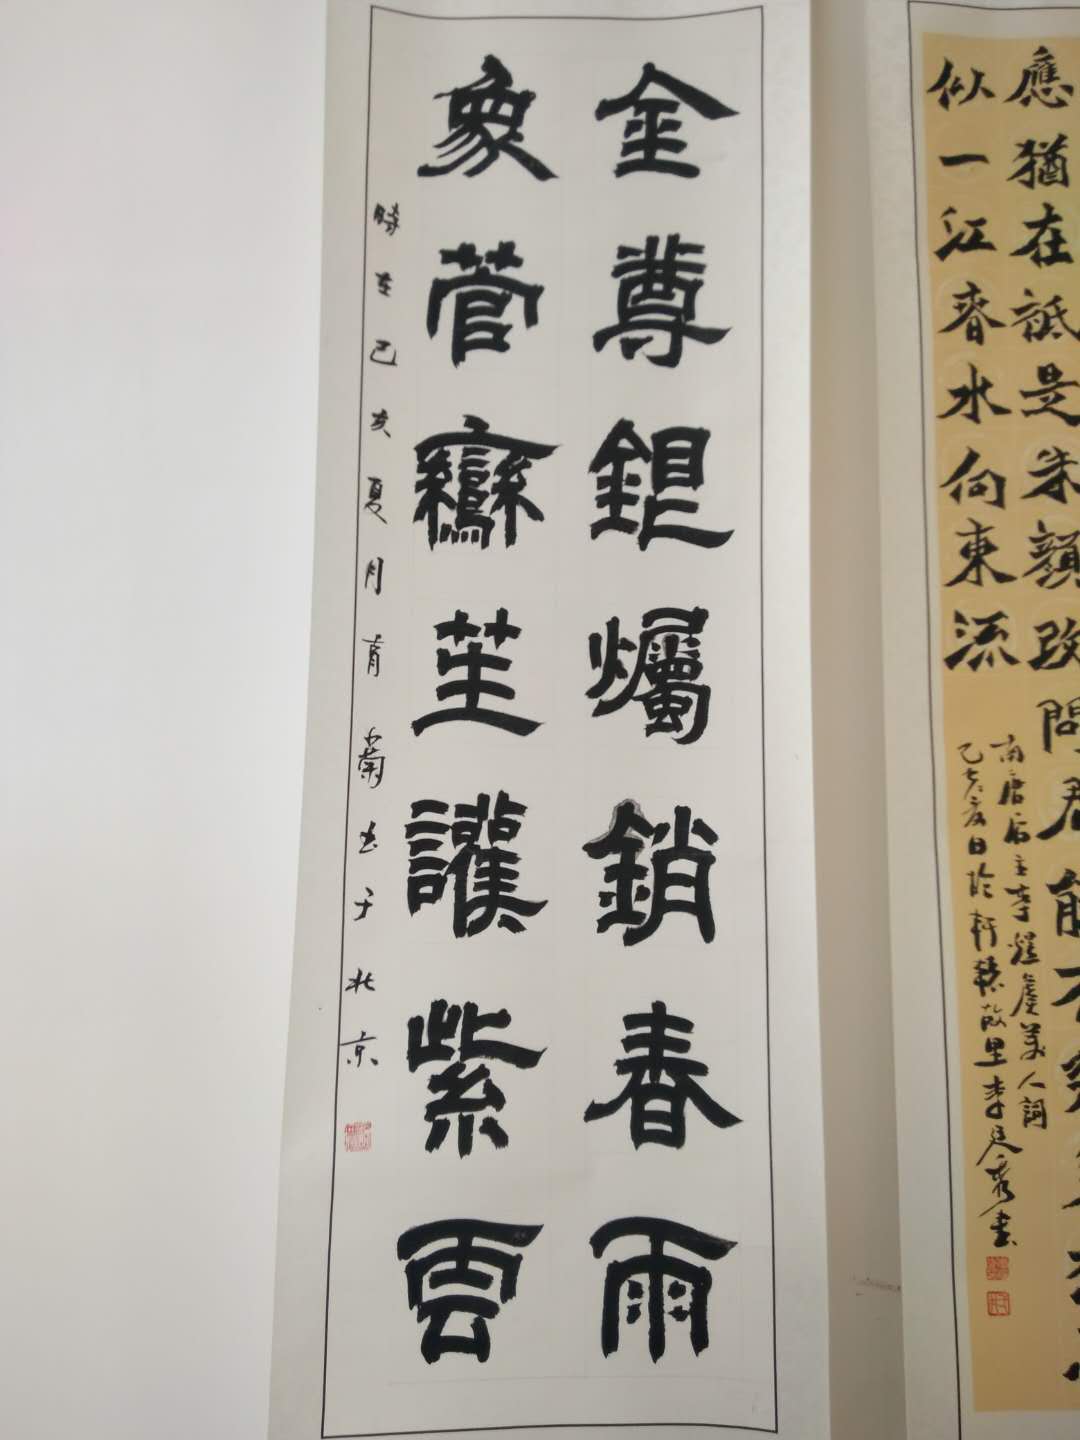 應猶在祗是朱顏改問君能
似一江春水向東流
南唐后主李煜虞美人詞
己亥夏日於軒轅故里李廷秀書
金尊銀爥銷春雨
象管鸞笙護紫雲
時在己亥夏月育蘭书于北京